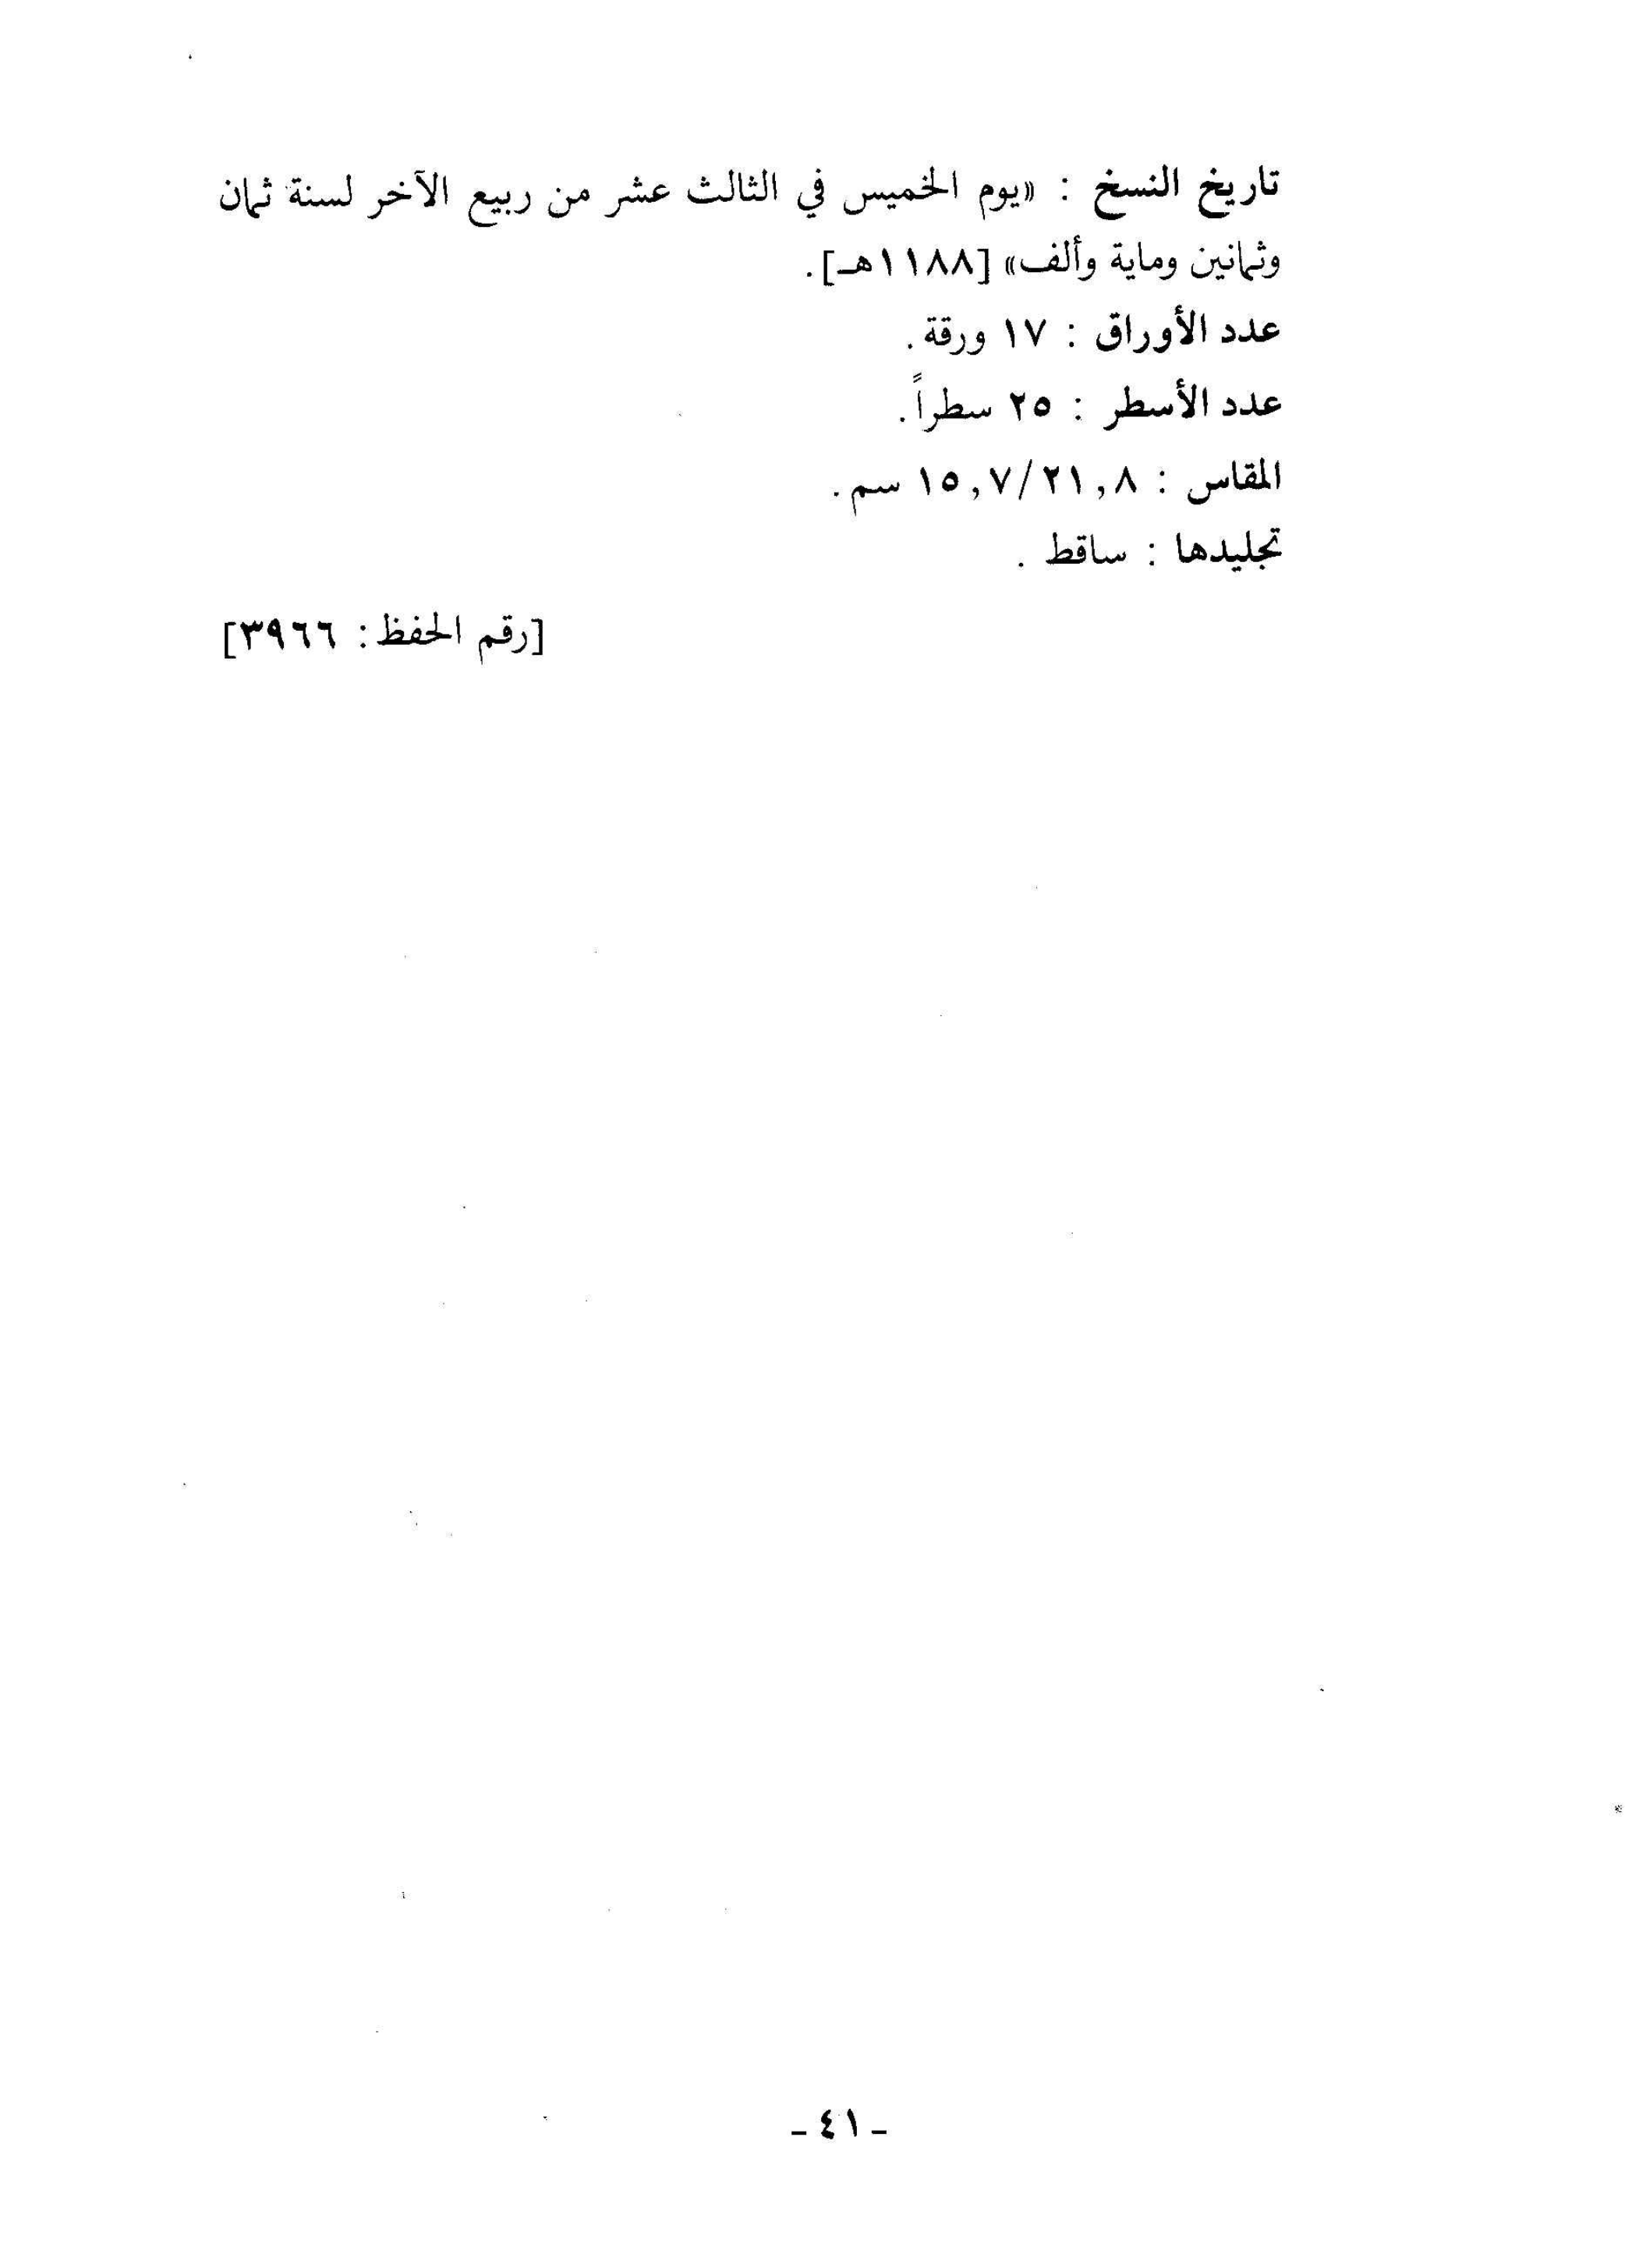 تاريخ النسخ : «يوم الخميس في الثالث عشر من ربيع الآخر لسنة ثمان
وثمانين وماية وألف» [١١٨٨هـ].
عدد الأوراق : ١٧ ورقة.
عدد الأسطر : ٢٥ سطراً.
المقاس : ١٥,٧/٢١,٨ سم.
تجليدها : ساقط .
[رقم الحفظ: ٣٩٦٦]
- ٤١ -